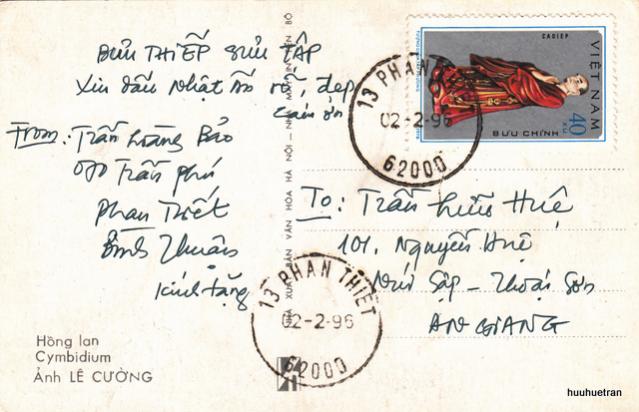 BƯU THIẾP SƯU TẬP
Xin dấu Nhật Ấn rõ, đẹp
Cám ơn
From: Trần Hoàng Bảo
Trần Phú
Phan Thiết
Bình Thuận
Kính tặng
To: Trần Hữu Huệ
101. Nguyễn Huệ
Núi Sập - Thoại Sơn
AN GIANG
CAOIEP
VIỆT NAM
40 XU
BƯU CHÍNH
13 PHAN T
02-2-96
62000
13 PHAN THIẾT
02-2-96
62000
NHÀ XUẤT BẢN VĂN HÓA HÀ NỘI - NHÀ MÁY IN TIẾN BỘ
Hồng lan
Cymbidium
Ảnh LÊ CƯỜNG
huuhuetran